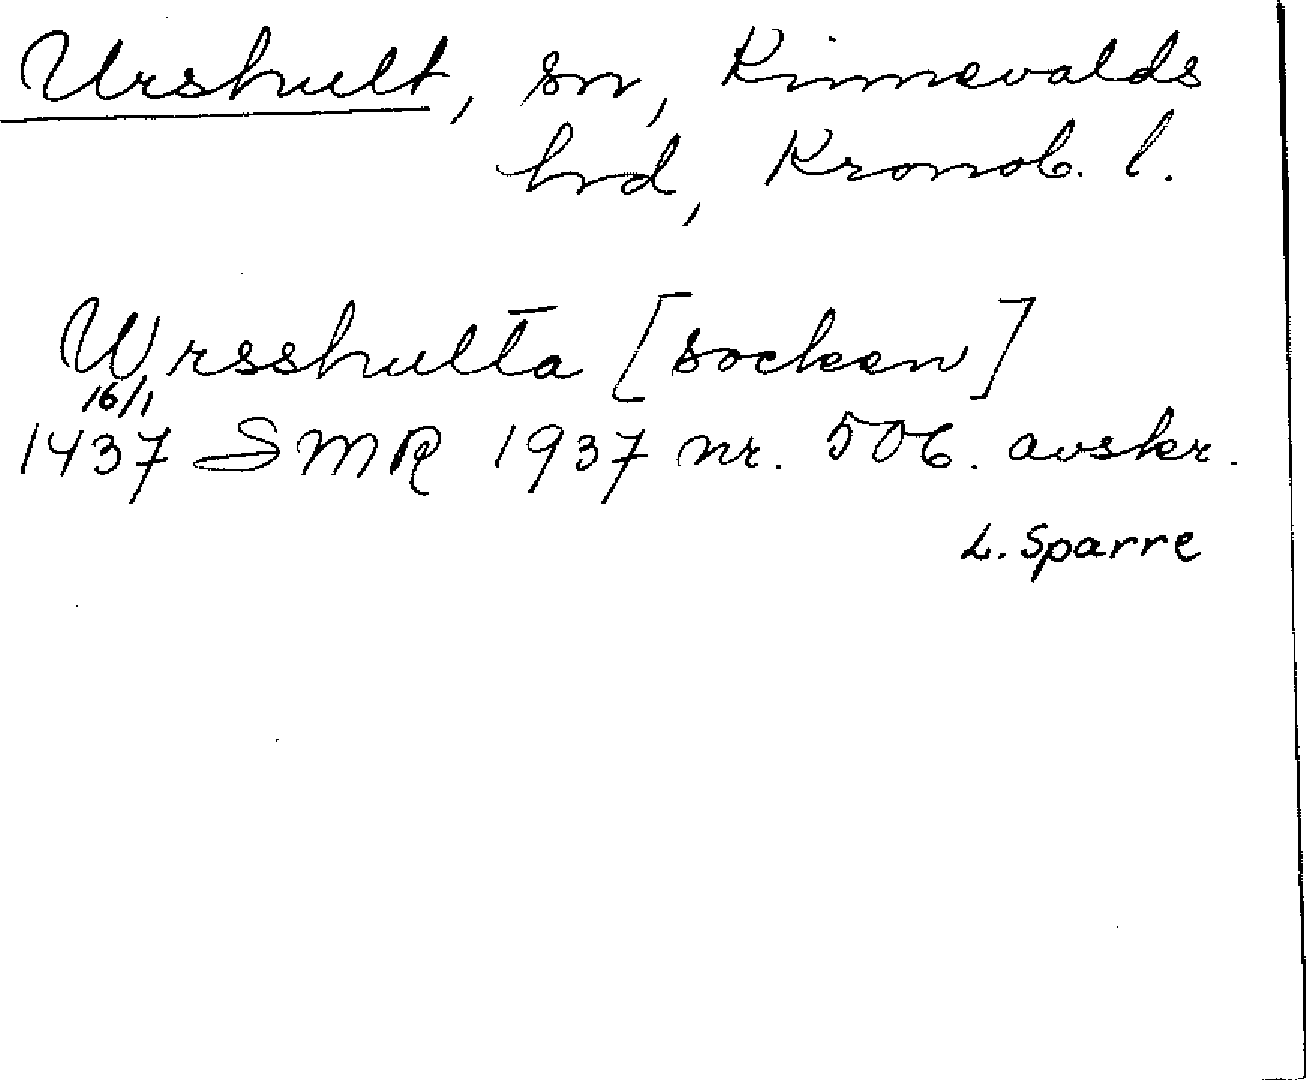 Urshult, sn, Kinnevalds
hrd, Kronob. l.
Wrsshulta [socken]
16/1
1437 SMR 1937 nr. 506. avskr.
L. Sparre